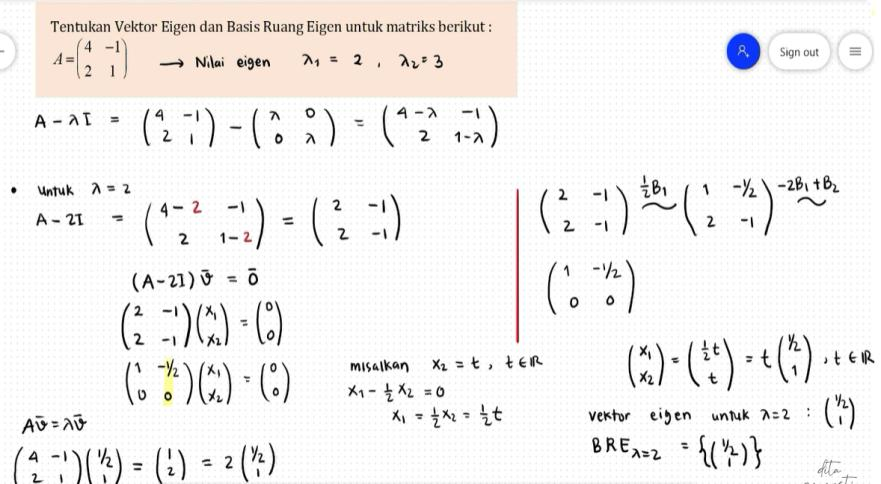 Tentukan Vektor Eigen dan Basis Ruang Eigen untuk matriks berikut :
A = (4 −1; 2 1) → Nilai eigen λ₁ = 2 , λ₂ = 3
Sign out
A − λI = (4 −1; 2 1) − (λ 0; 0 λ) = (4−λ −1; 2 1−λ)
• Untuk λ = 2
A − 2I = (4−2 −1; 2 1−2) = (2 −1; 2 −1)
(A−2I) v̄ = ō
(2 −1; 2 −1)(x₁; x₂) = (0; 0)
(1 −1/2; 0 0)(x₁; x₂) = (0; 0)
Av̄ = λv̄
(4 −1; 2 1)(1/2; 1) = (1; 2) = 2(1/2; 1)
(2 −1; 2 −1) ½B₁ ~ (1 −1/2; 2 −1) −2B₁+B₂ ~
(1 −1/2; 0 0)
misalkan x₂ = t , t ∈ ℝ
x₁ − ½x₂ = 0
x₁ = ½x₂ = ½t
(x₁; x₂) = (½t; t) = t(1/2; 1) , t ∈ ℝ
vektor eigen untuk λ=2 : (1/2; 1)
BRE λ=2 = {(1/2; 1)}
dita